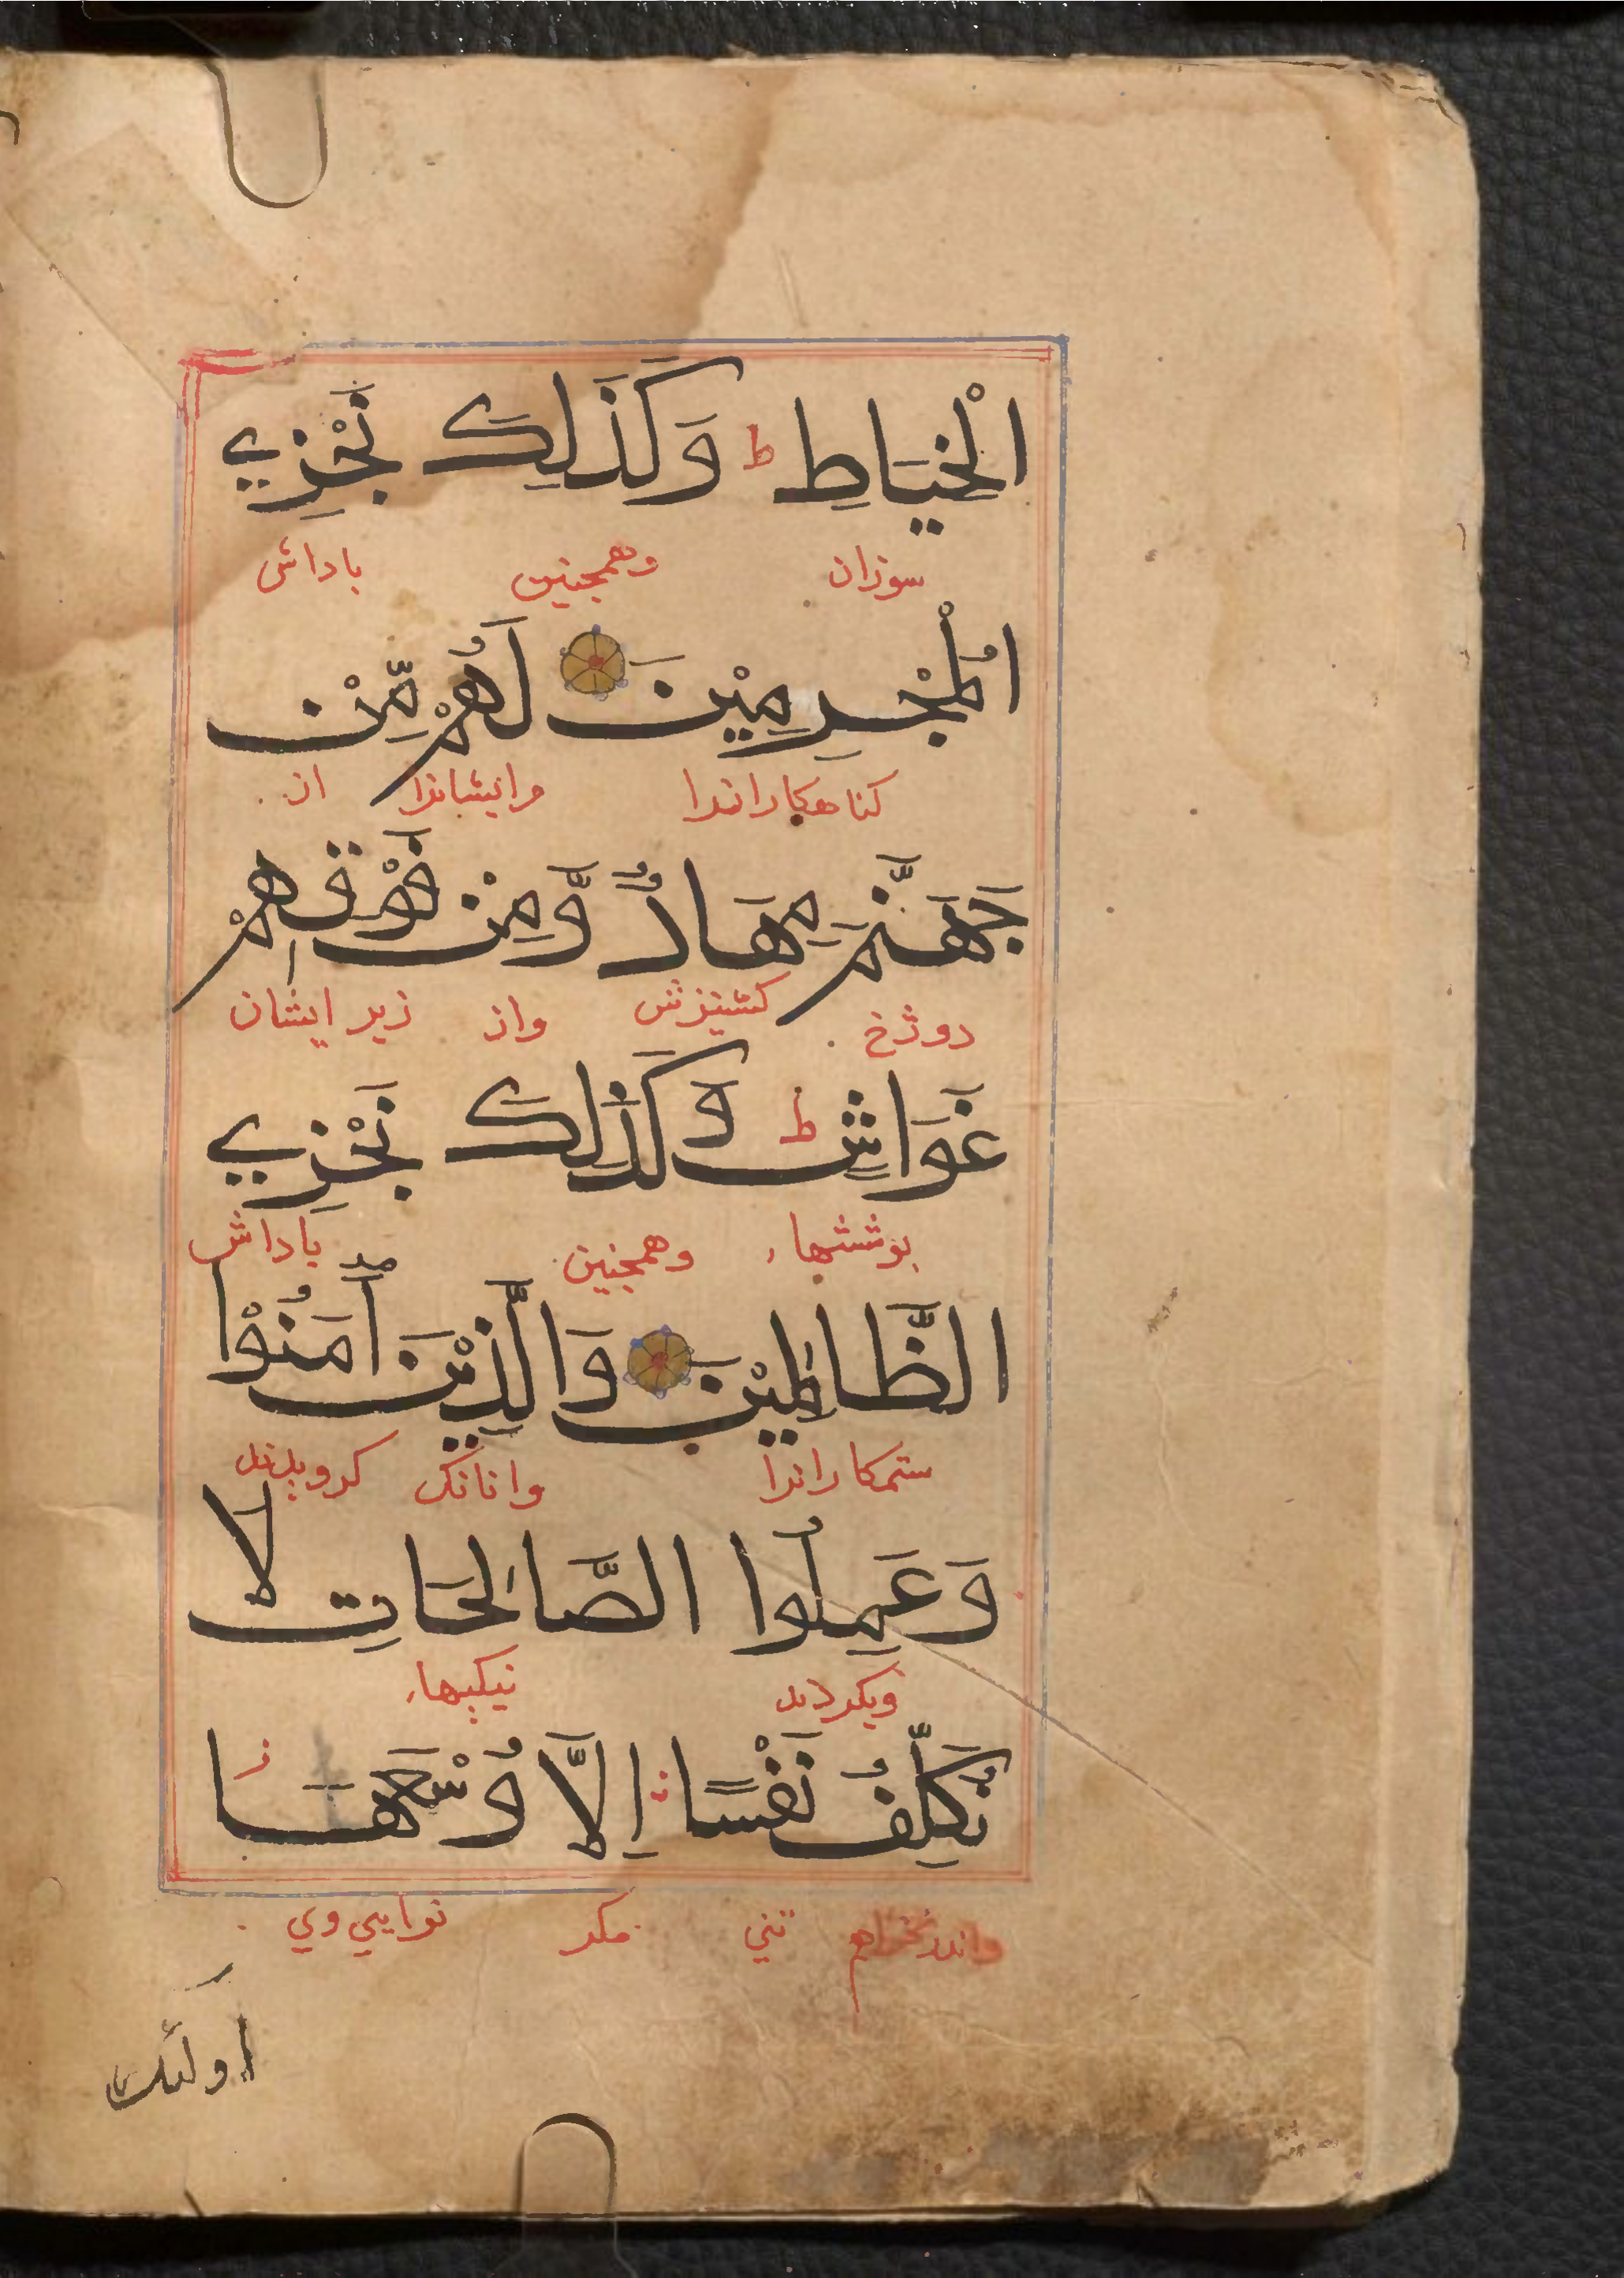 الْخِيَاطِ ط وَكَذَلِكَ نَجْزِي
سوزان وهمجنين باداش
الْمُجْرِمِيْنَ لَهُمْ مِّنْ
كناهكارانرا مرايشانرا از
جَهَنَّمَ مِهَادٌ وَّمِنْ فَوْقِهِمْ
دوزخ واز زير ايشان
غَوَاشٍ ط وَكَذٰلِكَ نَجْزِي
بوششهاء وهمجنين باداش
الظَّالِمِيْنَ وَالَّذِيْنَ اٰمَنُوْا
ستمكارانرا وانانك كرويدند
وَعَمِلُوا الصَّالِحَاتِ لَا
وبكردند نيكيها
نُكَلِّفُ نَفْسًا اِلَّا وُسْعَهَا ز
تني مكر توانايي وي
اولئك